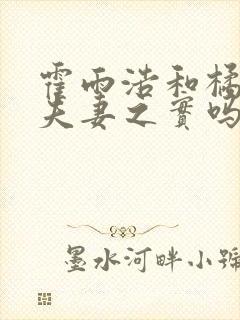 霍雨浩和橘
夫妻之實吗
墨水河畔小說